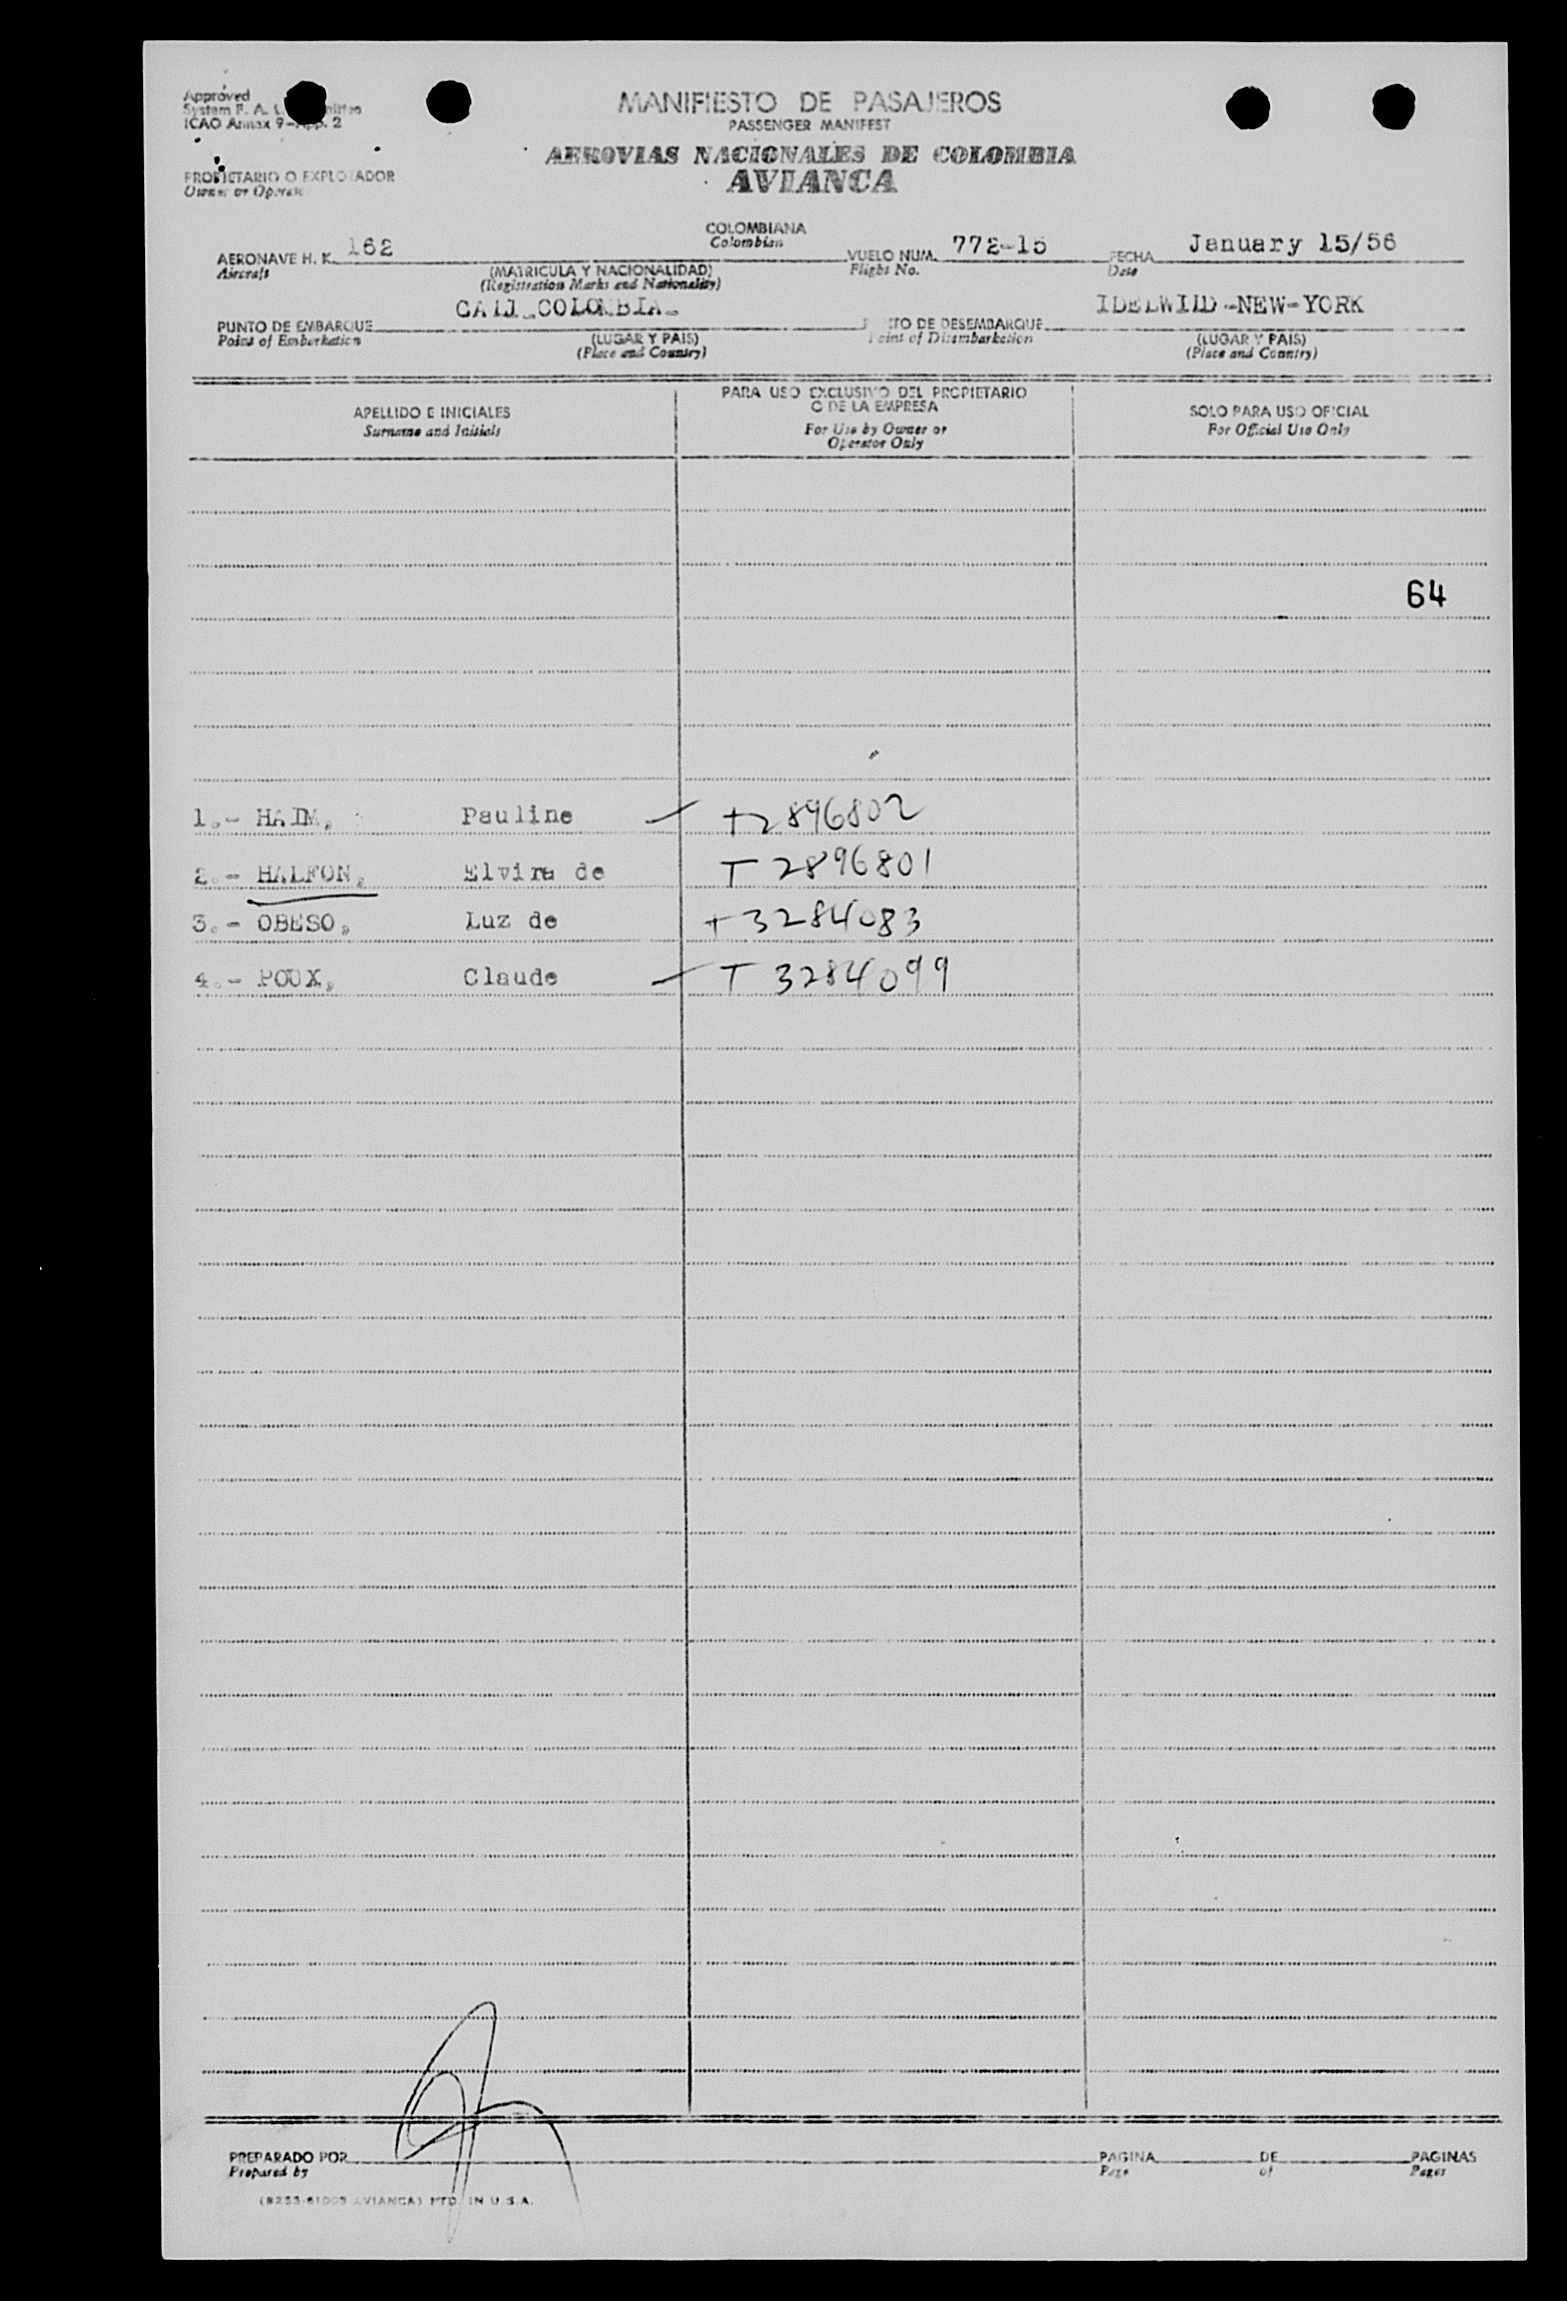 Approved
System F. A. L.
ICAO Annex 9-App. 2
MANIFIESTO DE PASAJEROS
PASSENGER MANIFEST
AEROVIAS NACIONALES DE COLOMBIA
AVIANCA
PROPIETARIO O EXPLOTADOR
Owner or Operator
AERONAVE H. K. 162
Aircraft
COLOMBIANA
Colombian
(MATRICULA Y NACIONALIDAD)
(Registration Marks and Nationality)
VUELO NUM. 772-15
Flight No.
FECHA January 15/56
Date
PUNTO DE EMBARQUE CALI_COLOMBIA_
Point of Embarkation
(LUGAR Y PAIS)
(Place and Country)
PUNTO DE DESEMBARQUE IDELWILD-NEW-YORK
Point of Disembarkation
(LUGAR Y PAIS)
(Place and Country)
APELLIDO E INICIALES
Surname and Initials
PARA USO EXCLUSIVO DEL PROPIETARIO
O DE LA EMPRESA
For Use by Owner or
Operator Only
SOLO PARA USO OFICIAL
For Official Use Only
64
1.- HAIM, Pauline +2896802
2.- HALFON, Elvira de T 2896801
3.- OBESO, Luz de +3284083
4.- POUX, Claude T 3284099
PREPARADO POR
Prepared by
PAGINA DE PAGINAS
Page of Pages
AVIANCA) PTD. IN U.S.A.